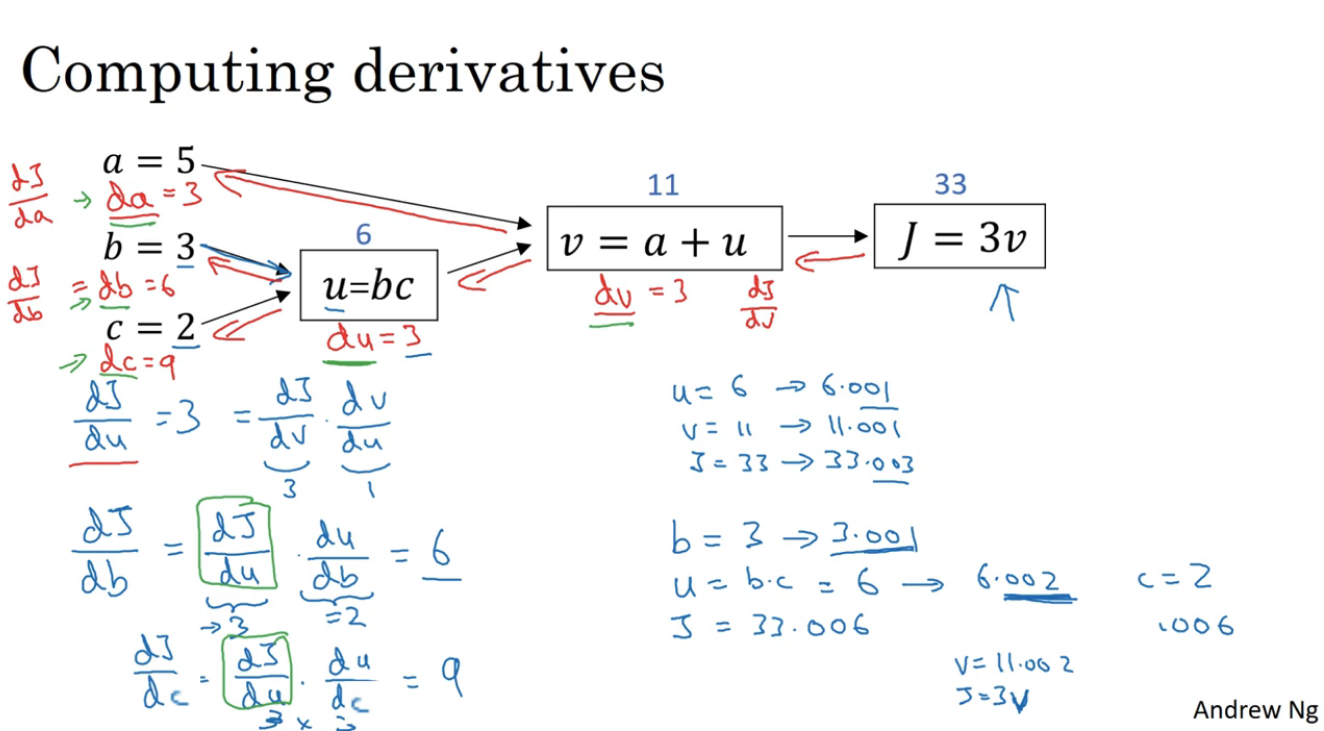 Computing derivatives
a = 5
dJ/da → da = 3
b = 3
dJ/db = → db = 6
c = 2
→ dc = 9
6
u=bc
du = 3
11
v = a + u
dv = 3 dJ/dv
33
J = 3v
dJ/du = 3 = dJ/dv · dv/du
3 1
dJ/db = dJ/du · du/db = 6
→ 3 = 2
dJ/dc = dJ/du · du/dc = 9
3 × 3
u = 6 → 6.001
v = 11 → 11.001
J = 33 → 33.003
b = 3 → 3.001
u = b·c = 6 → 6.002 c = 2
J = 33.006 .006
v = 11.002
J = 3v
Andrew Ng